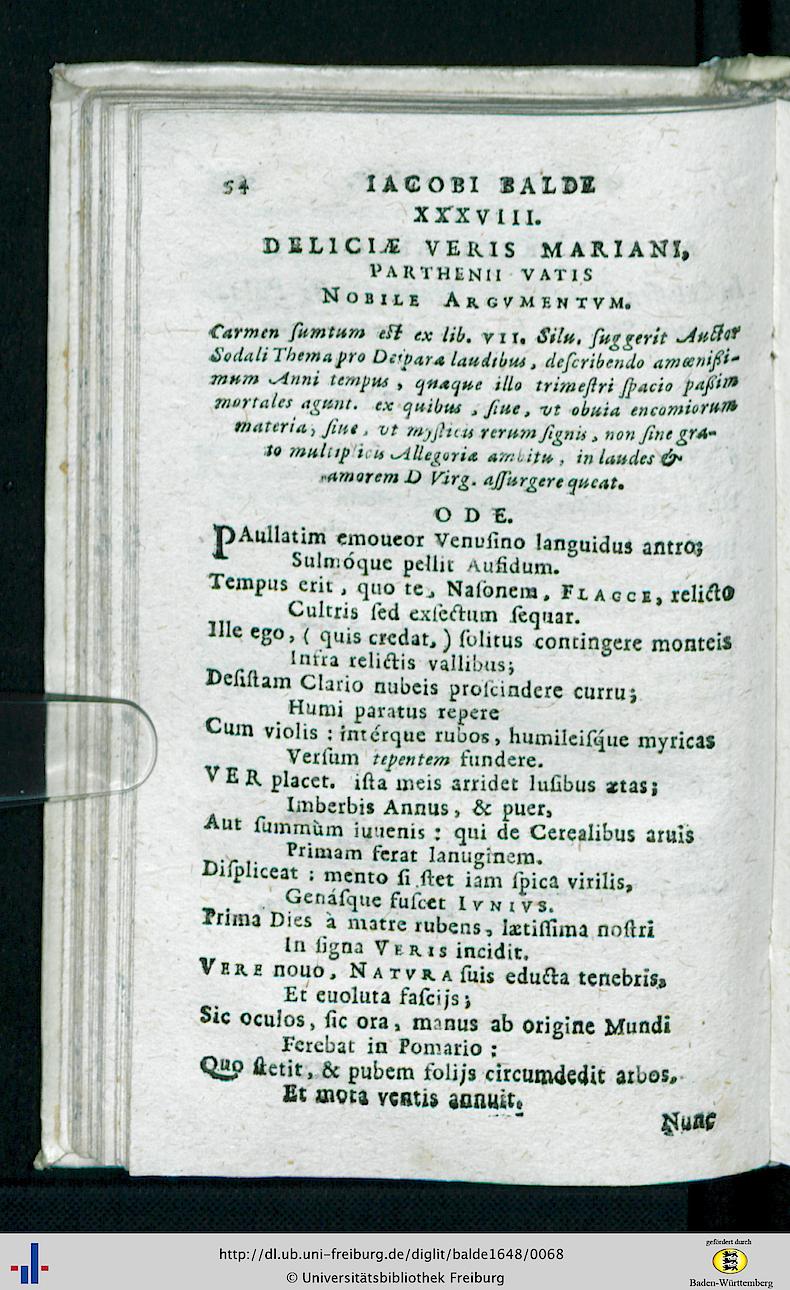 54 IACOBI BALDE
XXXVIII.
DELICIÆ VERIS MARIANI,
PARTHENII VATIS
NOBILE ARGVMENTVM.
Carmen ſumtum eſt ex lib. VII. Silu. ſuggerit Auctor
Sodali Thema pro Deiparæ laudibus, deſcribendo amœniſſi-
mum Anni tempus, quæque illo trimeſtri ſpacio paſſim
mortales agunt. ex quibus, ſiue, vt obuia encomiorum
materia, ſiue, vt myſticis rerum ſignis, non ſine gra-
to multiplicis Allegoriæ ambitu, in laudes &
amorem D Virg. aſſurgere queat.
ODE.
PAullatim emoueor Venuſino languidus antro;
Sulmóque pellit Aufidum.
Tempus erit, quo te, Naſonem, FLACCE, relicto
Cultris ſed exſectum ſequar.
Ille ego, ( quis credat, ) ſolitus contingere monteis
Infra relictis vallibus;
Deſiſtam Clario nubeis proſcindere curru;
Humi paratus repere
Cum violis : intérque rubos, humileiſq́ue myricas
Verſum tepentem fundere.
VER placet. iſta meis arridet luſibus ætas;
Imberbis Annus, & puer,
Aut ſummùm iuuenis : qui de Cerealibus aruis
Primam ferat lanuginem.
Diſpliceat : mento ſi ſtet iam ſpica virilis,
Genáſque fuſcet IVNIVS.
Prima Dies à matre rubens, lætiſſima noſtri
In ſigna VERIS incidit.
VERE nouo, NATVRA ſuis educta tenebris,
Et euoluta faſcijs;
Sic oculos, ſic ora, manus ab origine Mundi
Ferebat in Pomario :
Quo ſtetit, & pubem folijs circumdedit arbos,
Et mota ventis annuit.
Nunc
http://dl.ub.uni-freiburg.de/diglit/balde1648/0068
© Universitätsbibliothek Freiburg
gefördert durch
Baden-Württemberg